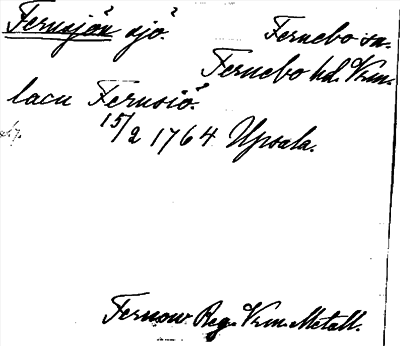 Fernsjön sjö.
Fernebo sn.
Fernebo hd. Vrm.
lacu Fernsiö.
15/2 1764 Upsala.
Fernow Beg. Vrm. Metall.